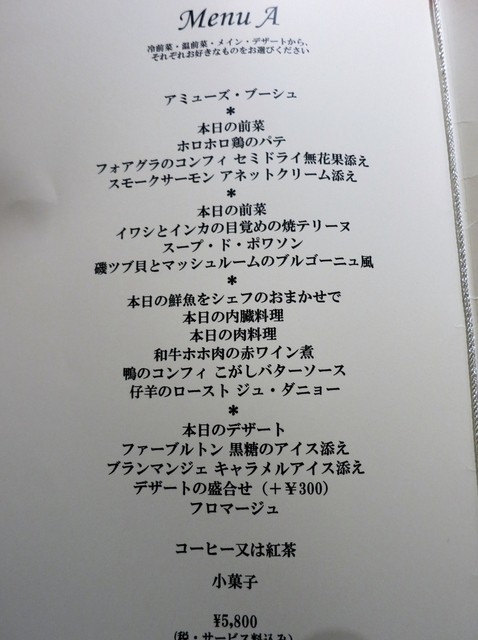 Menu A
冷前菜・温前菜・メイン・デザートから、
それぞれお好きなものをお選びください
アミューズ・ブーシュ
*
本日の前菜
ホロホロ鶏のパテ
フォアグラのコンフィ セミドライ無花果添え
スモークサーモン アネットクリーム添え
*
本日の前菜
イワシとインカの目覚めの焼テリーヌ
スープ・ド・ポワソン
磯ツブ貝とマッシュルームのブルゴーニュ風
*
本日の鮮魚をシェフのおまかせで
本日の内臓料理
本日の肉料理
和牛ホホ肉の赤ワイン煮
鴨のコンフィ こがしバターソース
仔羊のロースト ジュ・ダニョー
*
本日のデザート
ファーブルトン 黒糖のアイス添え
ブランマンジェ キャラメルアイス添え
デザートの盛合せ（＋￥300）
フロマージュ
コーヒー又は紅茶
小菓子
¥5,800
(税・サービス料込み)